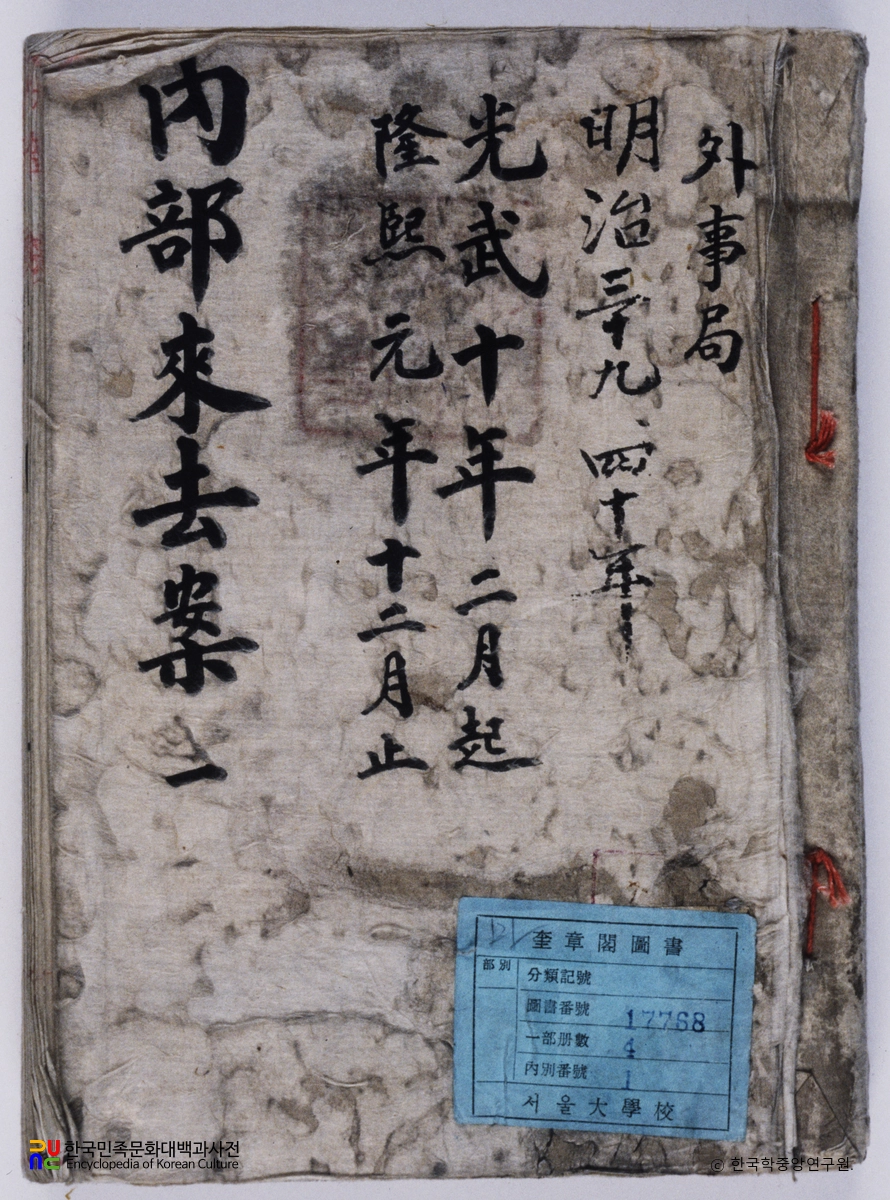 外事局
明治三十九、四十年
光武十年二月起
隆熙元年十二月止
內部來去案 一
奎章閣圖書
部別
分類記號
圖書番號 17768
一部册數 4
內別番號 1
서울大學校
한국민족문화대백과사전
Encyclopedia of Korean Culture
© 한국학중앙연구원.